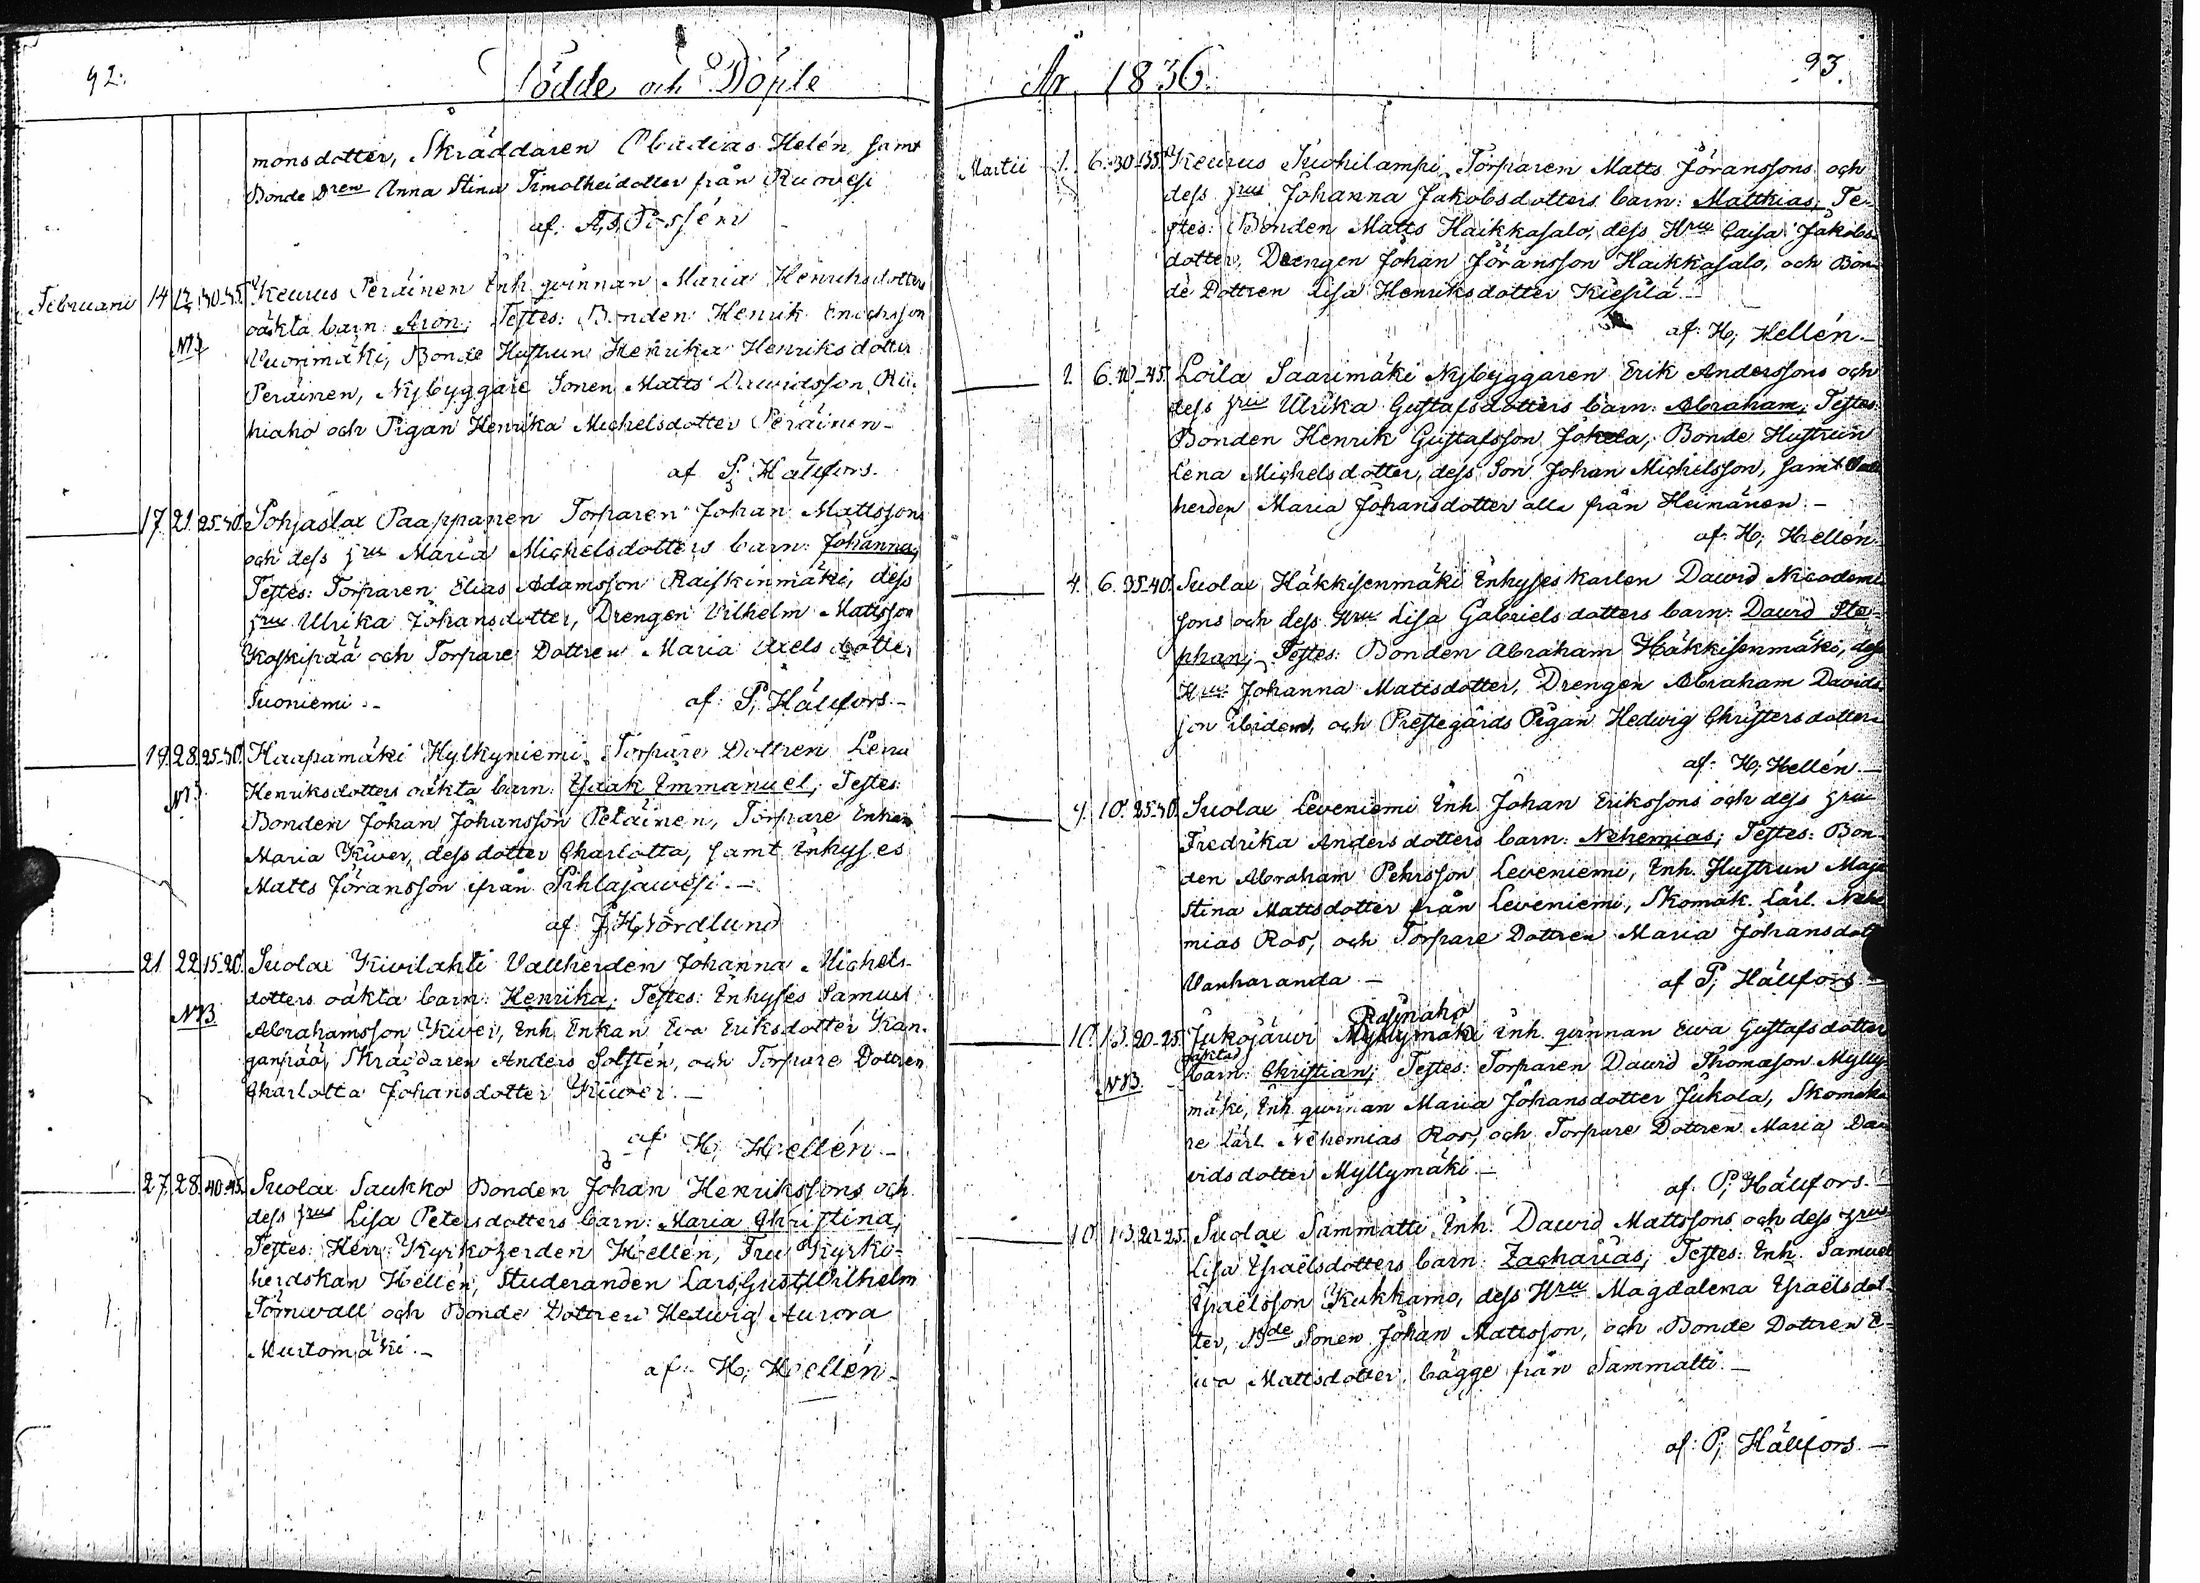 92.
Födde och Döpte
monsdotter, Skräddaren Obadias Helén, samt
Bonde Dren Anna Stina Timotheidotter från Ruovesi
af:
Februarii 14 30-35. Keurus Peräinen Inh. qvinnan Maria Henriksdotters
oäkta barn: Aron; Testes: Bonden Henrik Enochsson
NB Vuorimäki, Bonde Hustrun Henrika Henriksdotter
Peräinen, Nybyggare Sonen Matts Davidsson Rii-
hiaho och Pigan Henrika Michelsdotter Peräinen -
af P; Hällfors.
17. 21. 25-30. Pohjaslax Paappanen Torparen Johan Mattssons
och dess hru Maria Michelsdotters barn: Johanna,
Testes: Torparen Elias Adamsson Raiskinmäki, dess
hru Ulrika Johansdotter, Drengen Vilhelm Mattsson
Koskipää och Torpare Dottren Maria Axelsdotter
Tuoniemi.- af: P; Hällfors.-
19. 28. 25-30. Haapamäki Hylkyniemi Torpare Dottren Lena
NB Henriksdotters oäkta barn: Isaak Emmanuel; Testes:
Bonden Johan Johansson Petäinen, Torpare Enkan
Maria Kiver, dess dotter Charlotta, samt Inhyses
Matts Jöransson ifrån Pihlajawesi.-
af J. H. Nordlund
21. 22. 15-20. Suolax Kivilahti Vallherden Johanna Michels-
dotters oäkta barn: Henrika; Testes: Inhyses Samuel
NB Abrahamsson Kiver, Inh. Enkan Eva Eriksdotter Kan-
ganpää, Skräddaren Anders Solstén, och Torpare Dottren
Charlotta Johansdotter Kiver.-
af H; Hellén -
27. 28. 40-45. Suolax Saukko Bonden Johan Henrikssons och
dess hrus Lisa Petersdotters barn: Maria Christina;
Testes: Herr Kyrkoherden Hellén, Fru Kyrko-
herdskan Hellén, Studeranden Lars Gust. Wilhelm
Törnwall och Bonde Dottren Hedwig Aurora
Mustomäki.-
af: H; Hellén -
År 1836.
93.
Martii 1. 6. 30-35. Keurus Kuohilampi Torparen Matts Jöranssons och
dess hrus Johanna Jakobsdotters barn: Matthias; Te-
stes: Bonden Matts Haikkasalo, dess Hru Caisa Jakobs-
dotter, Drengen Johan Jöransson Haikkasalo, och Bon-
de Dottren Lisa Henriksdotter Kiesilä -
af: H; Hellén.-
2. 6. 40-45. Loila Saarimäki Nybyggaren Erik Anderssons och
dess hru Ulrika Gustafsdotters barn: Abraham; Testes:
Bonden Henrik Gustafsson Jokela, Bonde Hustrun
Lena Michelsdotter, dess Son Johan Michelsson, samt Vall-
herden Maria Johansdotter alla från Heimänen.-
af: H; Hellén.
4. 6. 35-40. Suolax Häkkisenmäki Inhyses Karlen David Nicodemi
sons och dess Hru Lisa Gabrielsdotters barn: David Ste-
phan; Testes: Bonden Abraham Häkkisenmäki, dess
Hru Johanna Mattsdotter, Drengen Abraham Davids-
son ibidem, och Prestegårds Pigan Hedwig Christersdotter-
af: H; Hellén.-
9. 10. 25-30. Suolax Leveniemi Inh. Johan Erikssons och dess hru
Fredrika Andersdotters barn: Nehemias; Testes: Bon-
den Abraham Pehrsson Leveniemi, Inh. Hustrun Maja
Stina Mattsdotter från Leveniemi, Skomak. Lärl. Nehe
mias Ros, och Torpare Dottren Maria Johansdott
Vanharanda - af P; Hällfors.-
Rasinaho
10. 13. 20-25. Jukojärvi Myllymäki Inh. qvinnan Ewa Gustafsdotter
oäkta
NB. barn: Christian; Testes: Torparen David Thomasson Mylly-
mäki, Inh. qvinnan Maria Johansdotter Jukola, Skomaka
re Lärl. Nehemias Ros, och Torpare Dottren Maria Da-
vidsdotter Myllymäki.-
af: P; Hällfors.-
10. 13. 20-25. Suolax Sammatti Inh. David Mattssons och dess hrus
Lisa Israelsdotters barn: Zacharias; Testes: Inh. Samuel
Israelsson Kukkamo, dess Hru Magdalena Israelsdot-
ter, Bde Sonen Johan Mattsson, och Bonde Dottren E-
va Mattsdotter, bägge från Sammatti.-
af: P; Hällfors.-